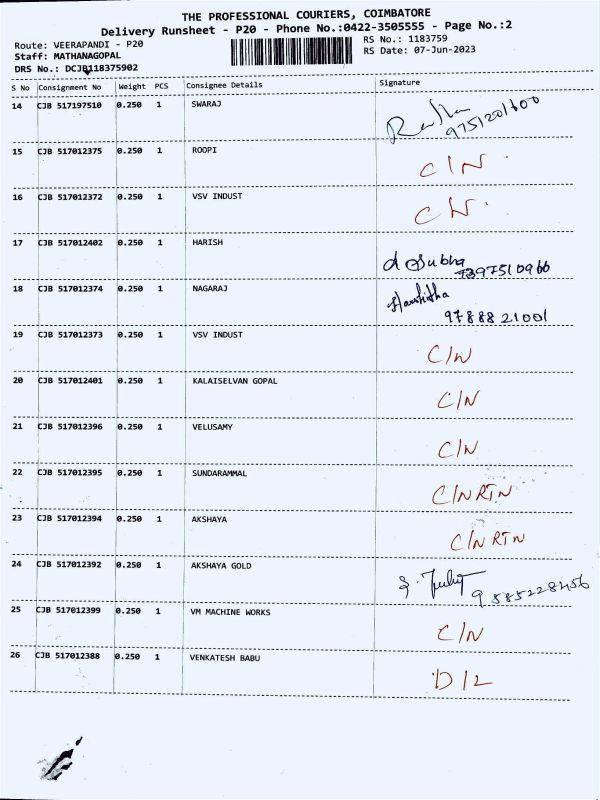 THE PROFESSIONAL COURIERS, COIMBATORE
Delivery Runsheet - P20 - Phone No.:0422-3505555 - Page No.:2
Route: VEERAPANDI - P20
RS No.: 1183759
Staff: MATHANAGOPAL
RS Date: 07-Jun-2023
DRS No.: DCJB118375902
S No Consignment No Weight PCS Consignee Details Signature
14 CJB 517197510 0.250 1 SWARAJ
9751201600
15 CJB 517012375 0.250 1 ROOPI C/N
16 CJB 517012372 0.250 1 VSV INDUST C/N
17 CJB 517012402 0.250 1 HARISH d Subha
7397510966
18 CJB 517012374 0.250 1 NAGARAJ
9788821001
19 CJB 517012373 0.250 1 VSV INDUST C/N
20 CJB 517012401 0.250 1 KALAISELVAN GOPAL C/N
21 CJB 517012396 0.250 1 VELUSAMY C/N
22 CJB 517012395 0.250 1 SUNDARAMMAL C/N RTN
23 CJB 517012394 0.250 1 AKSHAYA C/N RTN
24 CJB 517012392 0.250 1 AKSHAYA GOLD
9585228456
25 CJB 517012399 0.250 1 VM MACHINE WORKS C/N
26 CJB 517012388 0.250 1 VENKATESH BABU D/L